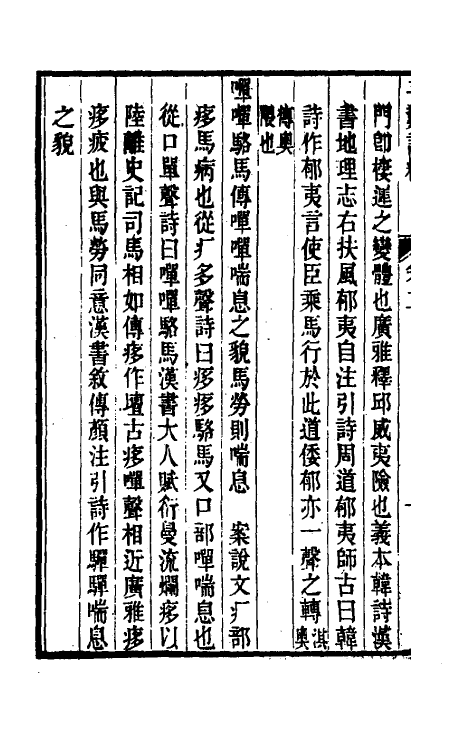 門卽棲遲之變體也廣雅釋邱威夷險也義本韓詩漢
書地理志右扶風郁夷自注引詩周道郁夷師古曰韓
詩作郁夷言使臣乘馬行於此道倭郁亦一聲之轉淇奧
傳奧隈也
嘽嘽駱馬傳嘽嘽喘息之貌馬勞則喘息　案說文疒部
痑馬病也從疒多聲詩曰痑痑駱馬又口部嘽喘息也
從口單聲詩曰嘽嘽駱馬漢書大人賦衍曼流爛痑以
陸離史記司馬相如傳痑作壇古痑嘽聲相近廣雅痑
痑疲也與馬勞同意漢書敘傳顏注引詩作驒驒喘息
之貌